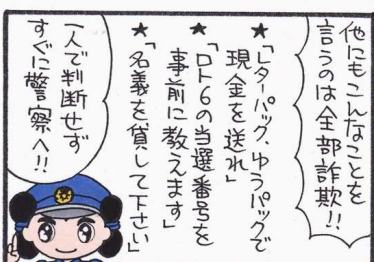 他にもこんなことを
言うのは全部詐欺!!
★「レターパック、ゆうパックで
現金を送れ」
★「ロト6の当選番号を
事前に教えます」
★「名義を貸して下さい」
一人で判断せず
すぐに警察へ!!